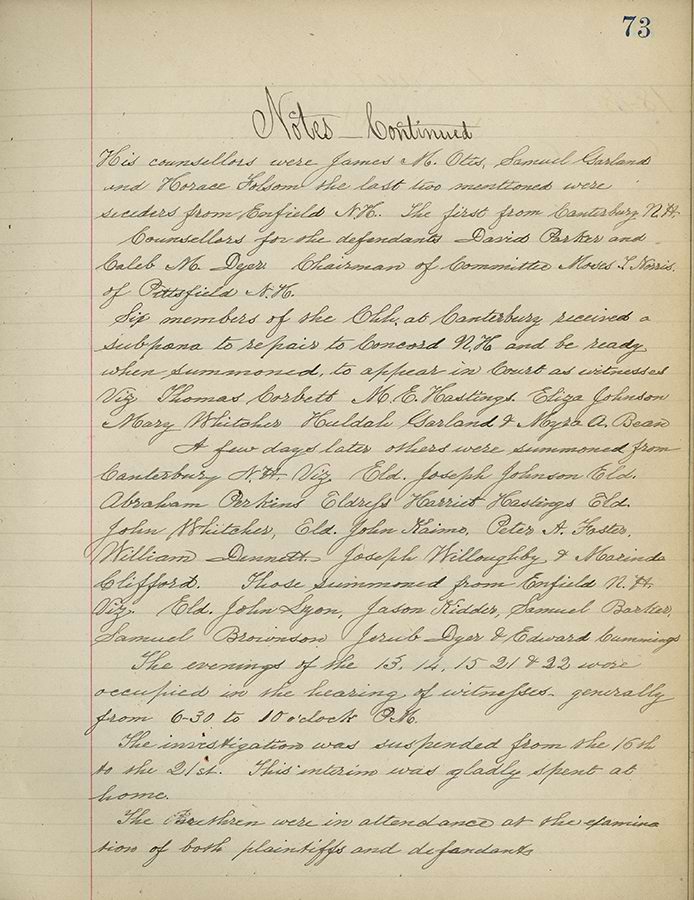 73
Notes – Continued
His counsellors were James M. Otis, Samuel Garland
and Horace Folsom the last two mentioned were
seceders from Enfield N.H. The first from Canterbury N.H.
Counsellors for the defendants David Parker and
Caleb M. Dyer Chairman of Committee Moses L. Norris.
of Pittsfield N.H.
Six members of the Chh. at Canterbury received a
subpœna to repair to Concord N.H. and be ready
when summoned, to appear in Court as witnesses
Viz Thomas Corbett M. E. Hastings. Eliza Johnson
Mary Whitcher Huldah Garland & Myra A. Bean
A few days later others were summoned from
Canterbury N.H. Viz. Eld. Joseph Johnson Eld.
Abraham Perkins Eldress Harriet Hastings Eld.
John Whitcher, Eld. John Kaime, Peter A. Foster,
William Dennett Joseph Willoughby & Marinda
Clifford. Those summoned from Enfield N.H.
Viz. Eld. John Lyon, Jason Kidder, Samuel Barker,
Samuel Brownson Jerub Dyer & Edward Cummings
The evenings of the 13, 14, 15 21 & 22 were
occupied in the hearing of witnesses. generally
from 6-30 to 10 o'clock P.M.
The investigation was suspended from the 16th
to the 21st. This interim was gladly spent at
home.
The Brethren were in attendance at the examina
tion of both plaintiffs and defendants